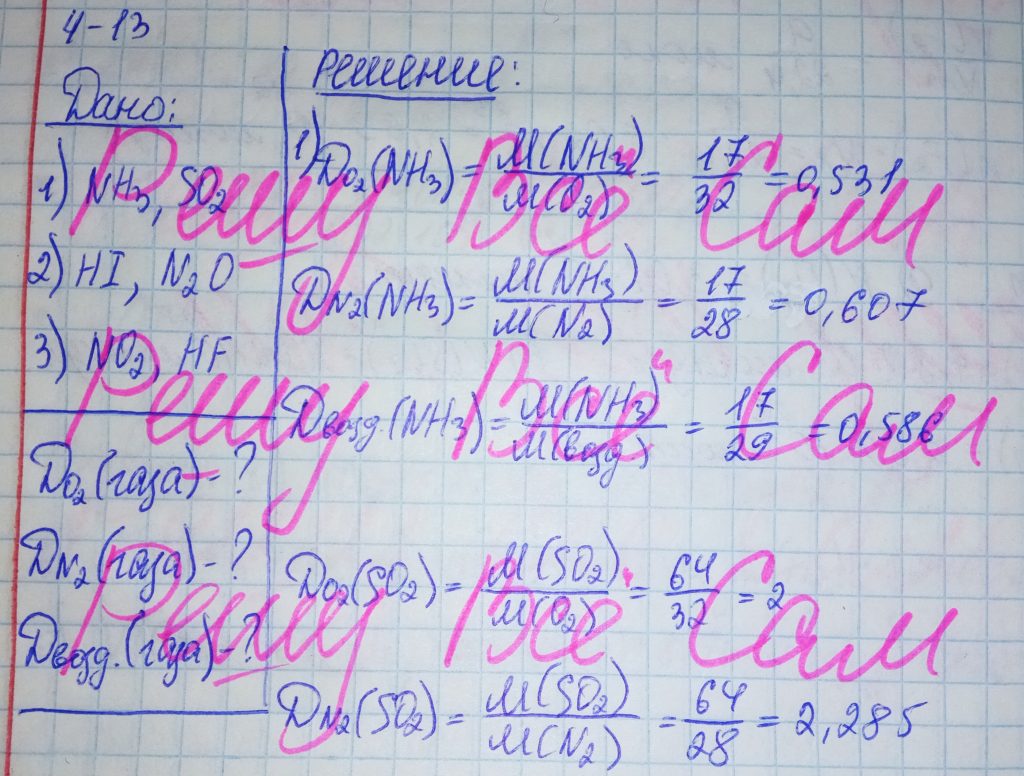 4-13
Дано:
1) NH3, SO2
2) HI, N2O
3) NO2, HF
DO2(газа)-?
DN2(газа)-?
Dвозд.(газа)-?
Решение:
1) DO2(NH3) = M(NH3)/M(O2) = 17/32 = 0,531
DN2(NH3) = M(NH3)/M(N2) = 17/28 = 0,607
Dвозд.(NH3) = M(NH3)/M(возд) = 17/29 = 0,586
DO2(SO2) = M(SO2)/M(O2) = 64/32 = 2
DN2(SO2) = M(SO2)/M(N2) = 64/28 = 2,285
Решу Всё Сам
Решу Всё Сам
Решу Всё Сам